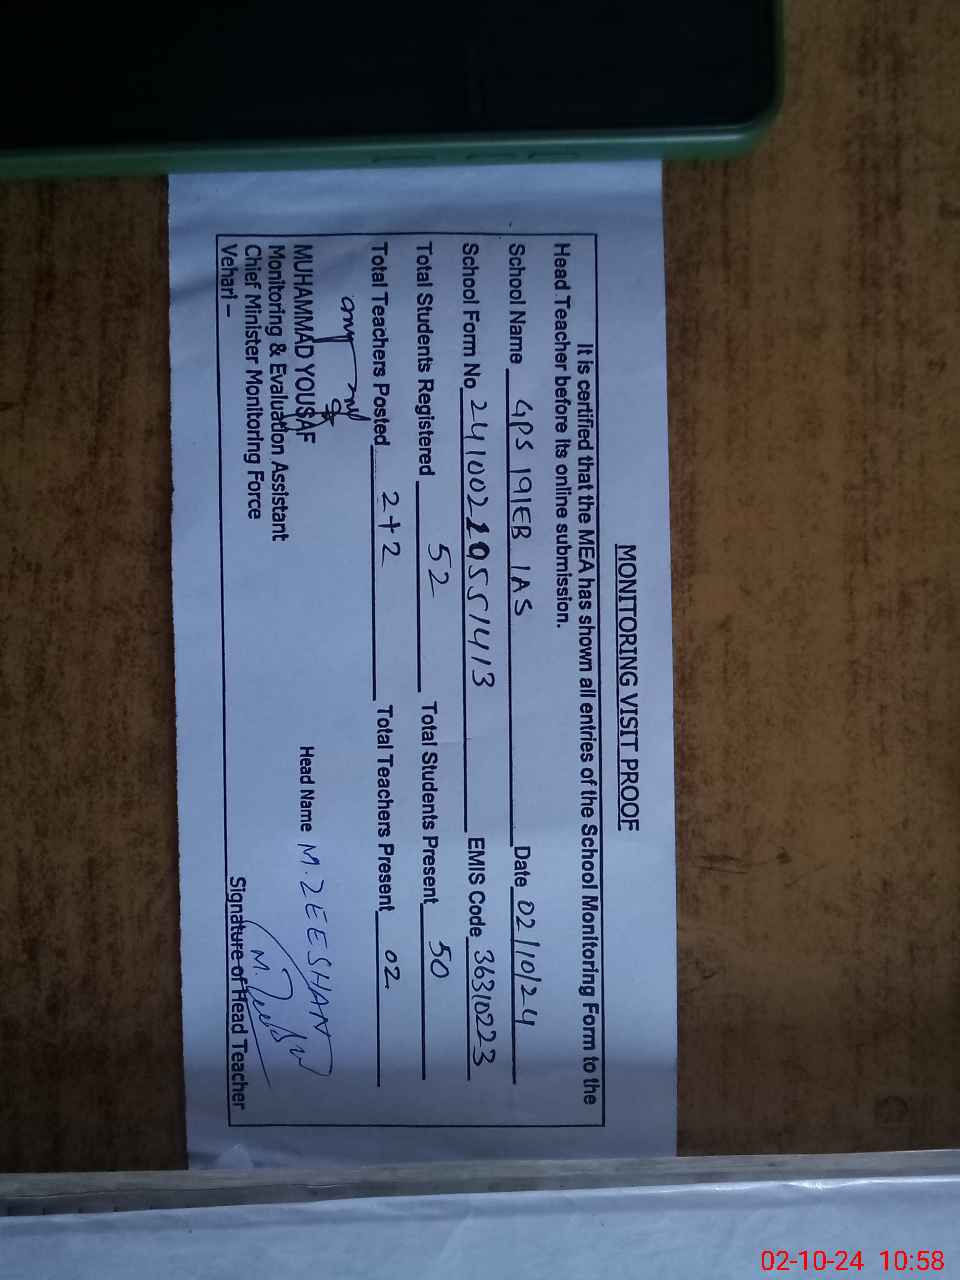 MONITORING VISIT PROOF
It is certified that the MEA has shown all entries of the School Monitoring Form to the
Head Teacher before its online submission.
School Name GPS 191EB IAS Date 02/10/24
School Form No 24100210551413 EMIS Code 36310223
Total Students Registered 52 Total Students Present 50
Total Teachers Posted 2+2 Total Teachers Present 02
MUHAMMAD YOUSAF Head Name M. ZEESHAN
Monitoring & Evaluation Assistant
Chief Minister Monitoring Force
Vehari –
Signature of Head Teacher
02-10-24 10:58